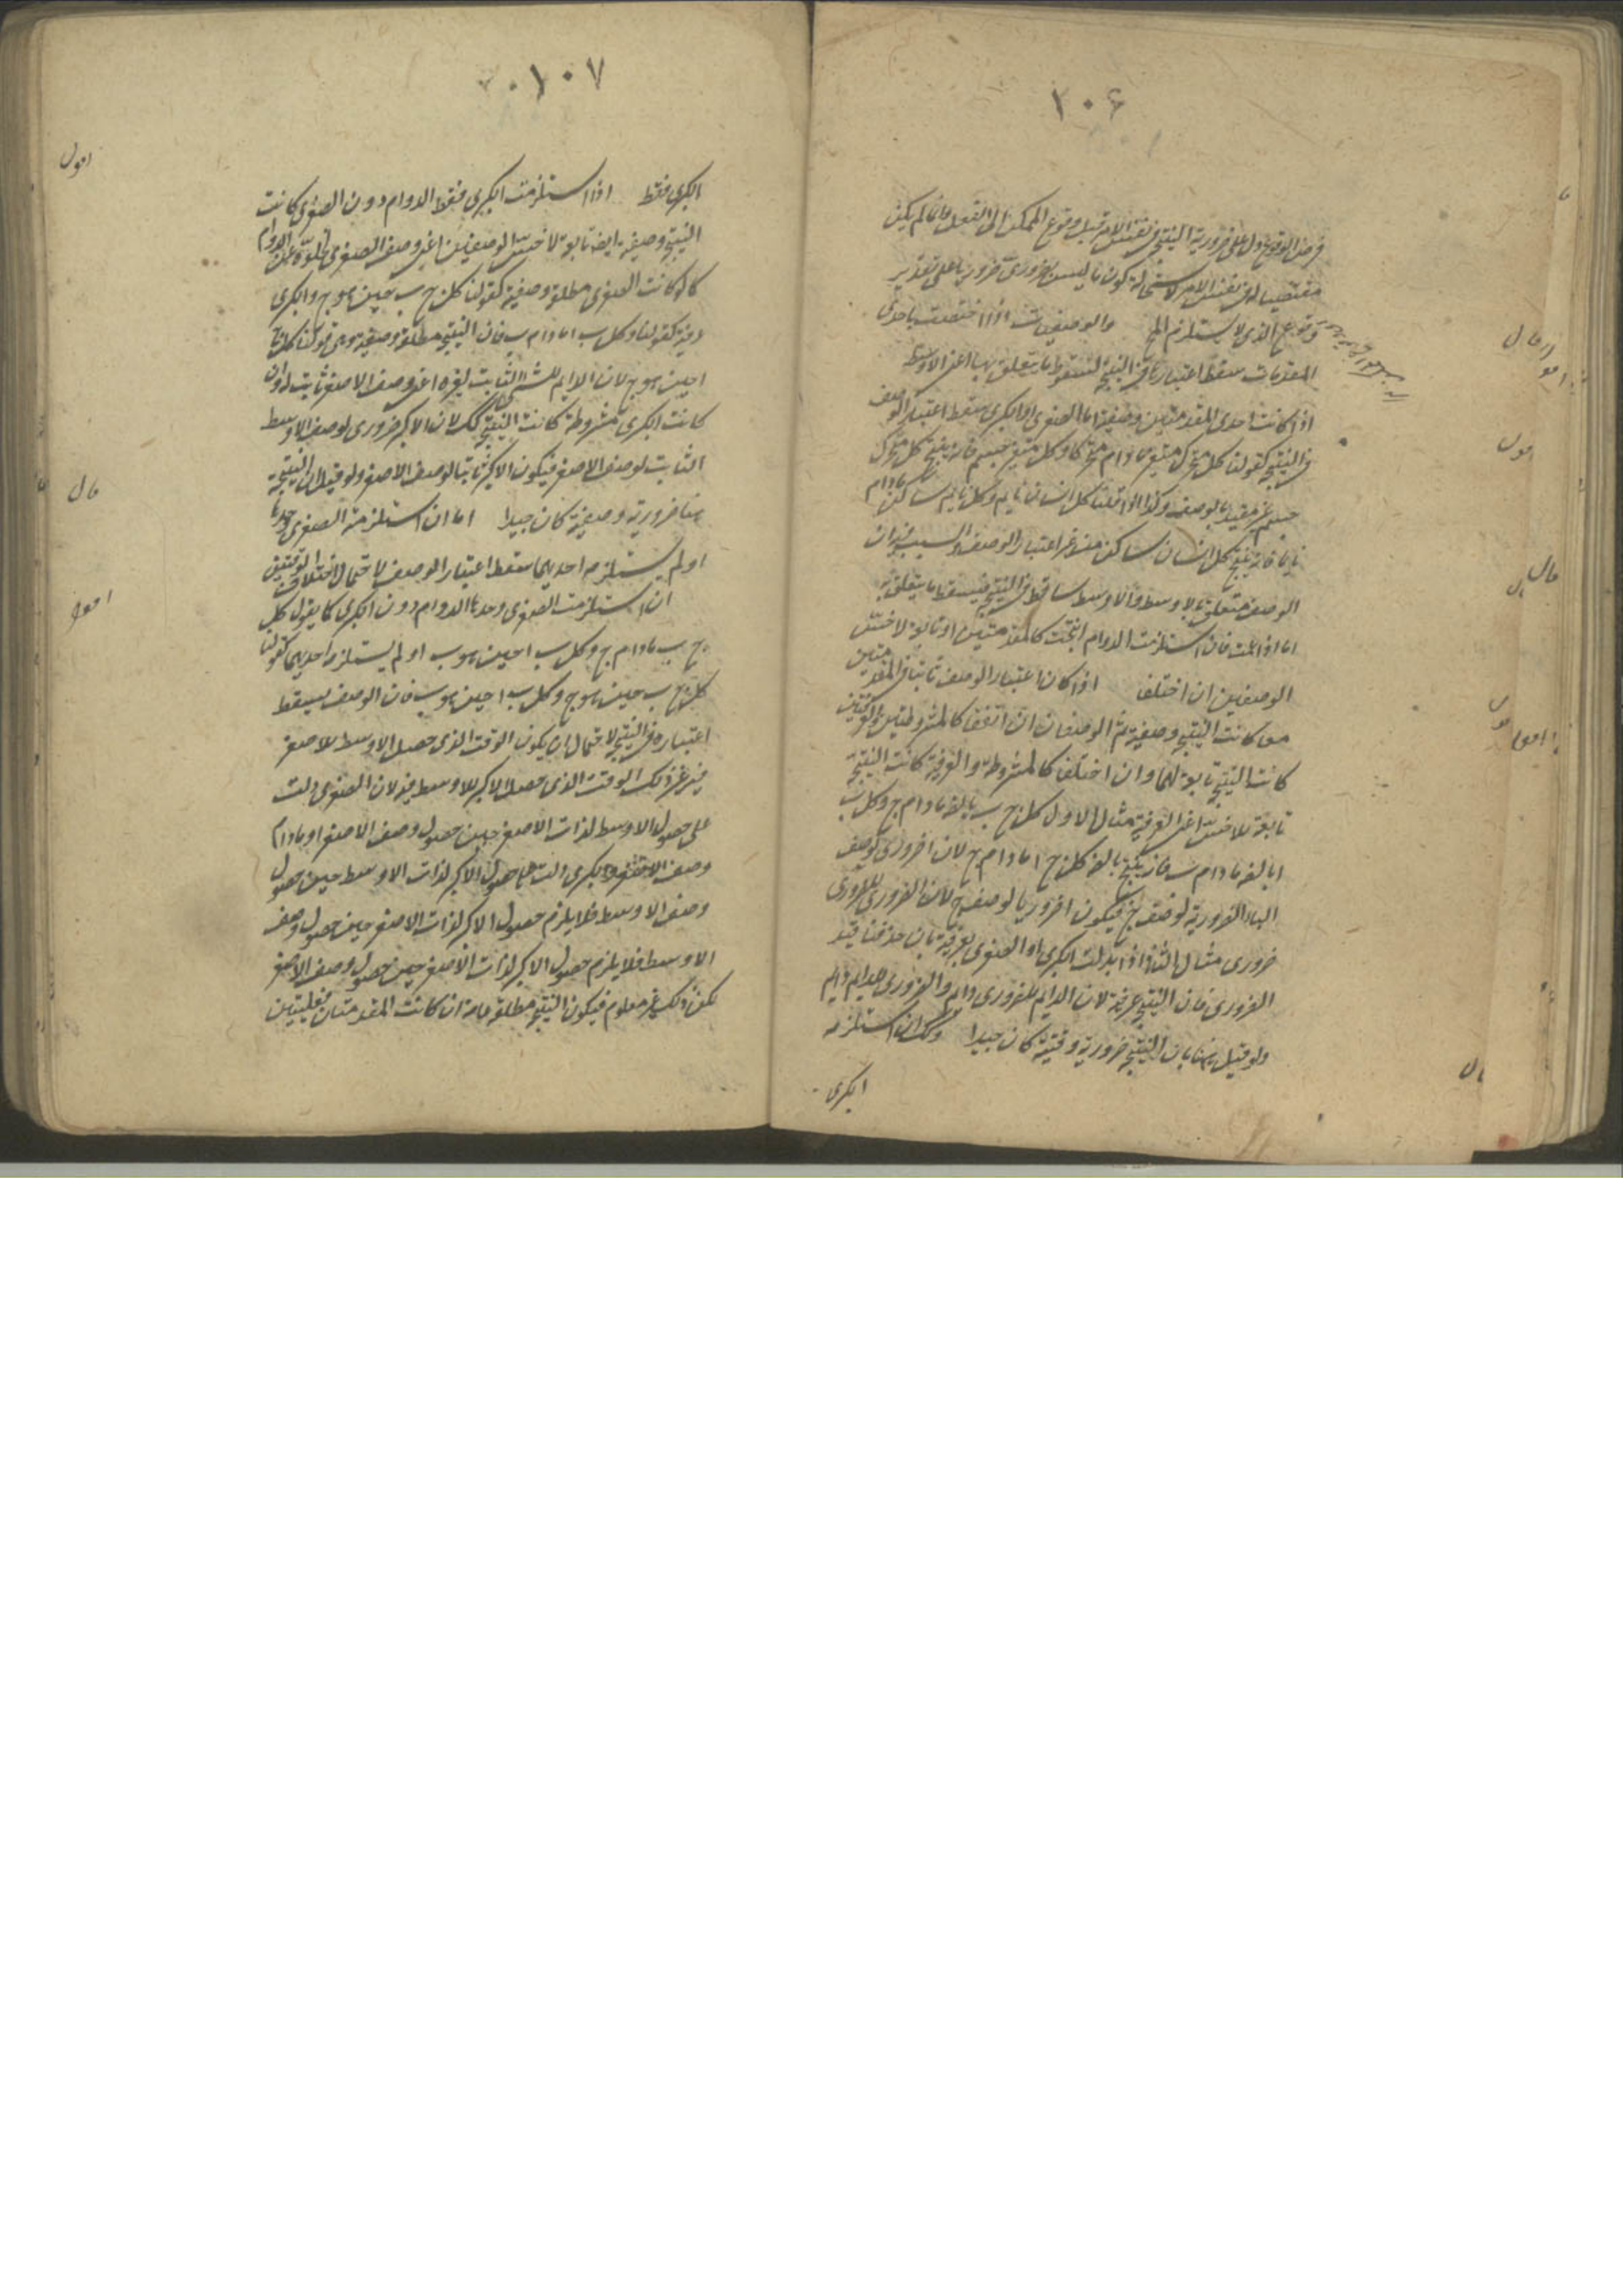 ٢٠٦
فرض الوقوع دل على ضرورية النتيجة في نفس الامر قبل وقوع الممكن الى الفعل فانه لم يكن
مقتضيا له في نفس الامر لاستحالة كون ما ليس بضروري ضروريا على تقدير
وقوع الذي لا يستلزم المح والوصفيات اذا اختصت باحدى
المقدمات سقط اعتبارها في النتيجة لسقوط ما يتعلق بها اعني الاوسط
اذا كانت احدى المقدمتين وصفية اما الصغرى او الكبرى سقط اعتبار الوصف
في النتيجة كقولنا كل متحرك متغير ما دام متحركا وكل متغير جسم فانه ينتج كل متحرك
جسم غير مقيد بالوصف وكذا اذا قلنا كل انسان نايم وكل نايم ساكن ما دام
نايما فانه ينتج كل انسان ساكن من غير اعتبار الوصف والسبب فيه ان
الوصف متعلق بالاوسط والاوسط ساقط في النتيجة فيسقط ما يتعلق به
اما اذا عمت فان استلزمت الدوام انتجت كالمقدمتين او تابعة لاخس
الوصفين ان اختلفا اذا كان اعتبار الوصف ثابتا في المقدمتين
معا كانت النتيجة وصفية ثم الوصفان ان اتفقا كالمشروطتين والعرفيتين
كانت النتيجة تابعة لهما وان اختلفا كالمشروطة والعرفية كانت النتيجة
تابعة للاخس اعني العرفية مثال الاول كل ج ب بالضه ما دام ج وكل ب
ا بالضه ما دام ب فانه ينتج بالضه كل ج ا ما دام ج لان ا ضروري لوصف
الباء الضرورية لوصف ج فيكون ا ضروريا لوصف ج لان الضروري للضروري
ضروري مثال الثاني اذا بدلت الكبرى او الصغرى بعرفية بان حذفنا قيد
الضروري فان النتيجة عرفية لان الدايم للضروري دايم والضروري للدايم دايم
ولو قيل هنا بان النتيجة ضرورية وقتية كان جيدا وكك ان استلزمه
الكبرى
١٠٧
الكبرى فقط اذا استلزمت الكبرى فقط الدوام دون الصغرى كانت
النتيجة وصفية ايضا تابعة لاخس الوصفين اعني وصف الصغرى لخلوه عن الدوام
كما لو كانت الصغرى مطلقة وصفية كقولنا كل ج ب حين هو ج والكبرى
عرفية كقولنا وكل ب ا ما دام ب فان النتيجة مطلقة وصفية وهي قولنا كل ج
ا حين هو ج لان الدايم للشيء الثابت لغيره اعني وصف الاصغر ثابت له وان
كانت الكبرى مشروطة كانت النتيجة كك لان الاكبر ضروري لوصف الاوسط
الثابت لوصف الاصغر فيكون الاكبر ثابتا لوصف الاصغر ولو قيل ان النتيجة
هنا ضرورية وصفية كان جيدا اما ان استلزمته الصغرى وحدها
او لم يستلزمه احديهما سقط اعتبار الوصف لاحتمال اختلاف الوقتين
ان استلزمت الصغرى وحدها الدوام دون الكبرى كما يقول كل
ج ب ما دام ج وكل ب ا حين هو ب او لم يستلزم احديهما كقولنا
كل ج ب حين هو ج وكل ب ا حين هو ب فان الوصف يسقط
اعتباره في النتيجة لاحتمال ان يكون الوقت الذي حصل الاوسط للاصغر
فيه غير ذلك الوقت الذي حصل الاكبر للاوسط فيه لان الصغرى دلت
على حصول الاوسط لذات الاصغر حين حصول وصف الاصغر او ما دام
وصف الاصغر والكبرى دلت على حصول الاكبر لذات الاوسط حين حصول
وصف الاوسط فلا يلزم حصول الاكبر لذات الاصغر حين حصول وصف
الاوسط فلا يلزم حصول الاكبر لذات الاصغر حين حصول وصف الاصغر
لكن ذلك غير معلوم فيكون النتيجة مطلقة عامة ان كانت المقدمتان فعليتين
اقول
قال
اقول